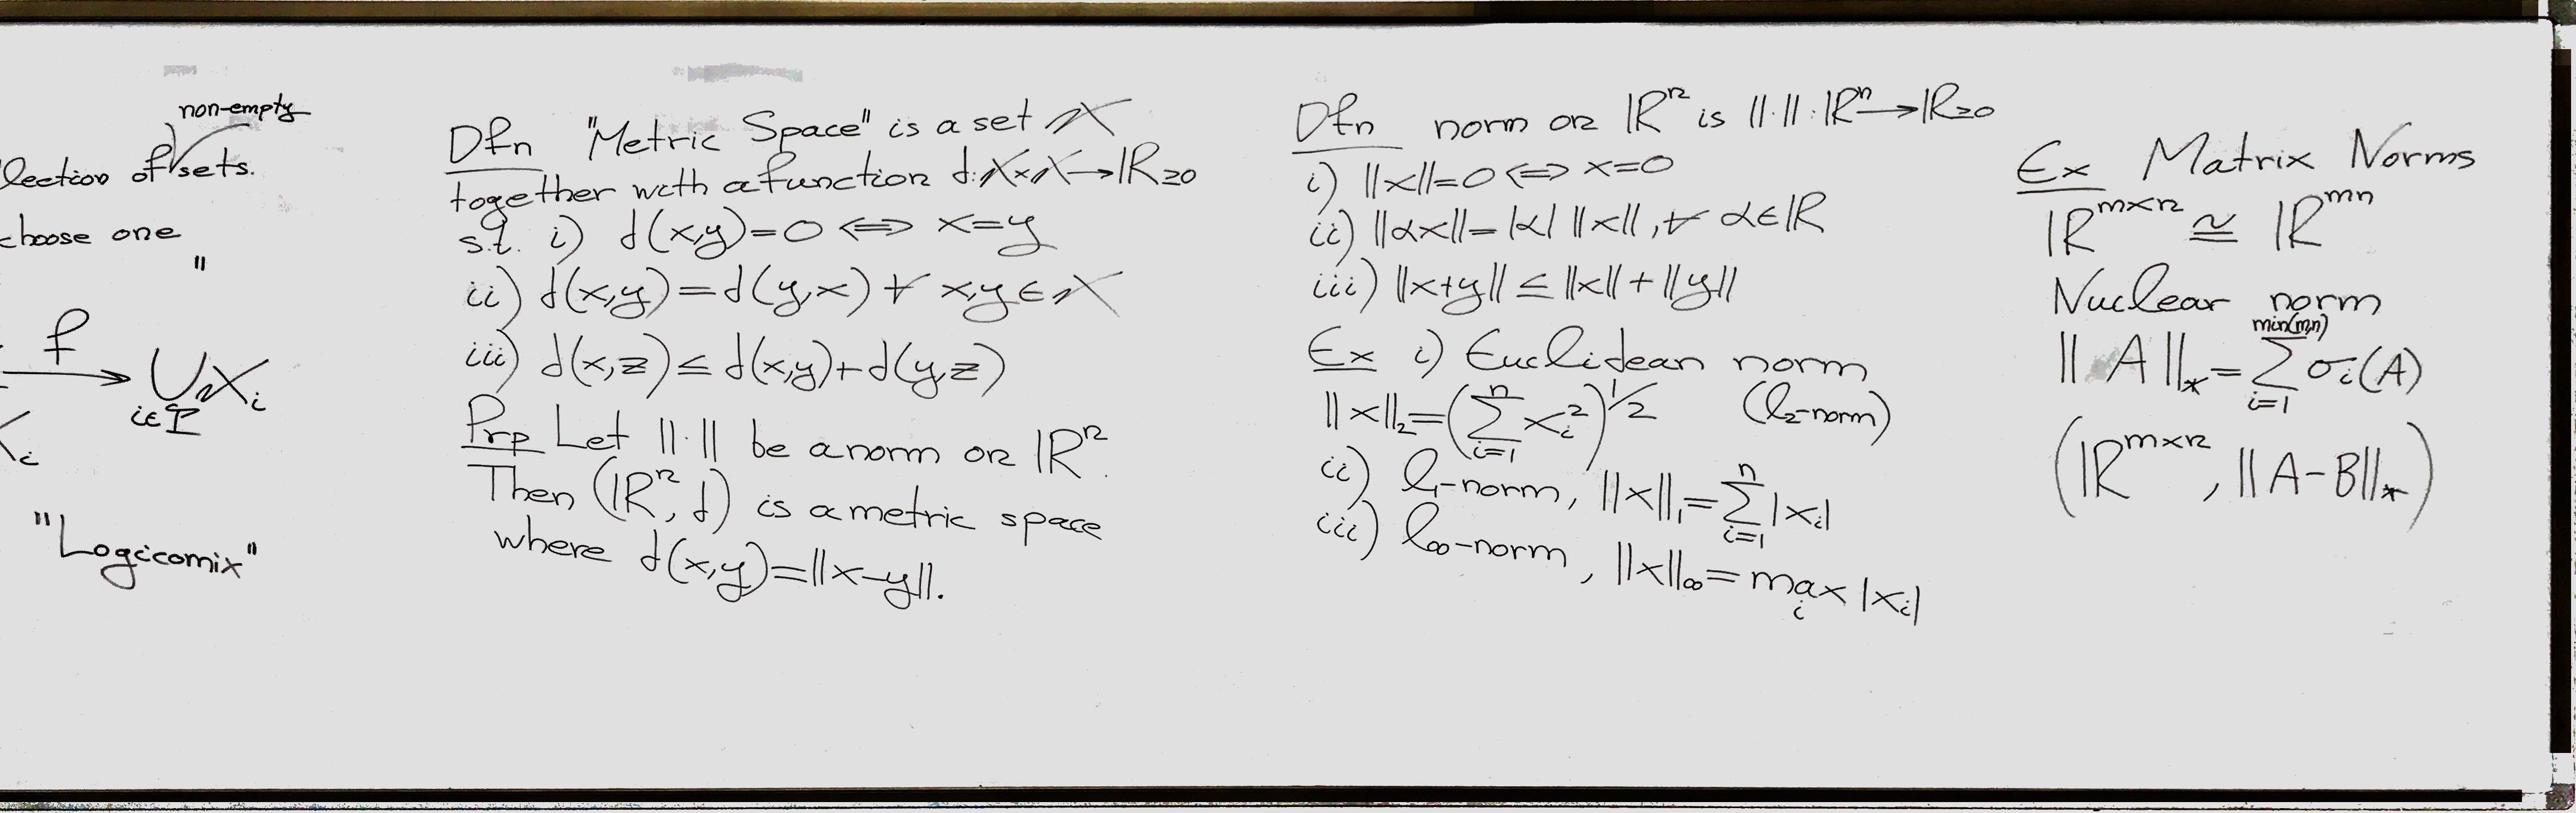 non-empty
lection of sets.
choose one
"
f
⋃ X_i
i∈I
X_i
"Logicomix"
Dfn "Metric Space" is a set X
together with a function d: X×X→ℝ≥0
s.t. i) d(x,y)=0 ⟺ x=y
ii) d(x,y)=d(y,x) ∀ x,y∈X
iii) d(x,z)≤d(x,y)+d(y,z)
Prp Let ||·|| be a norm on ℝⁿ.
Then (ℝⁿ, d) is a metric space
where d(x,y)=||x-y||.
Dfn norm on ℝⁿ is ||·||:ℝⁿ→ℝ≥0
i) ||x||=0 ⟺ x=0
ii) ||αx||=|α| ||x||, ∀ α∈ℝ
iii) ||x+y|| ≤ ||x||+||y||
Ex i) Euclidean norm
||x||₂=(∑_{i=1}^{n} x_i²)^{1/2} (l₂-norm)
ii) l₁-norm, ||x||₁=∑_{i=1}^{n} |x_i|
iii) l∞-norm, ||x||∞=max_i |x_i|
Ex Matrix Norms
ℝ^{m×n} ≅ ℝ^{mn}
Nuclear norm
||A||_*=∑_{i=1}^{min(m,n)} σ_i(A)
(ℝ^{m×n}, ||A-B||_*)